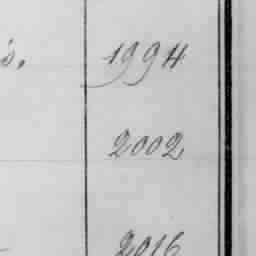 s. 1994
2002
2016